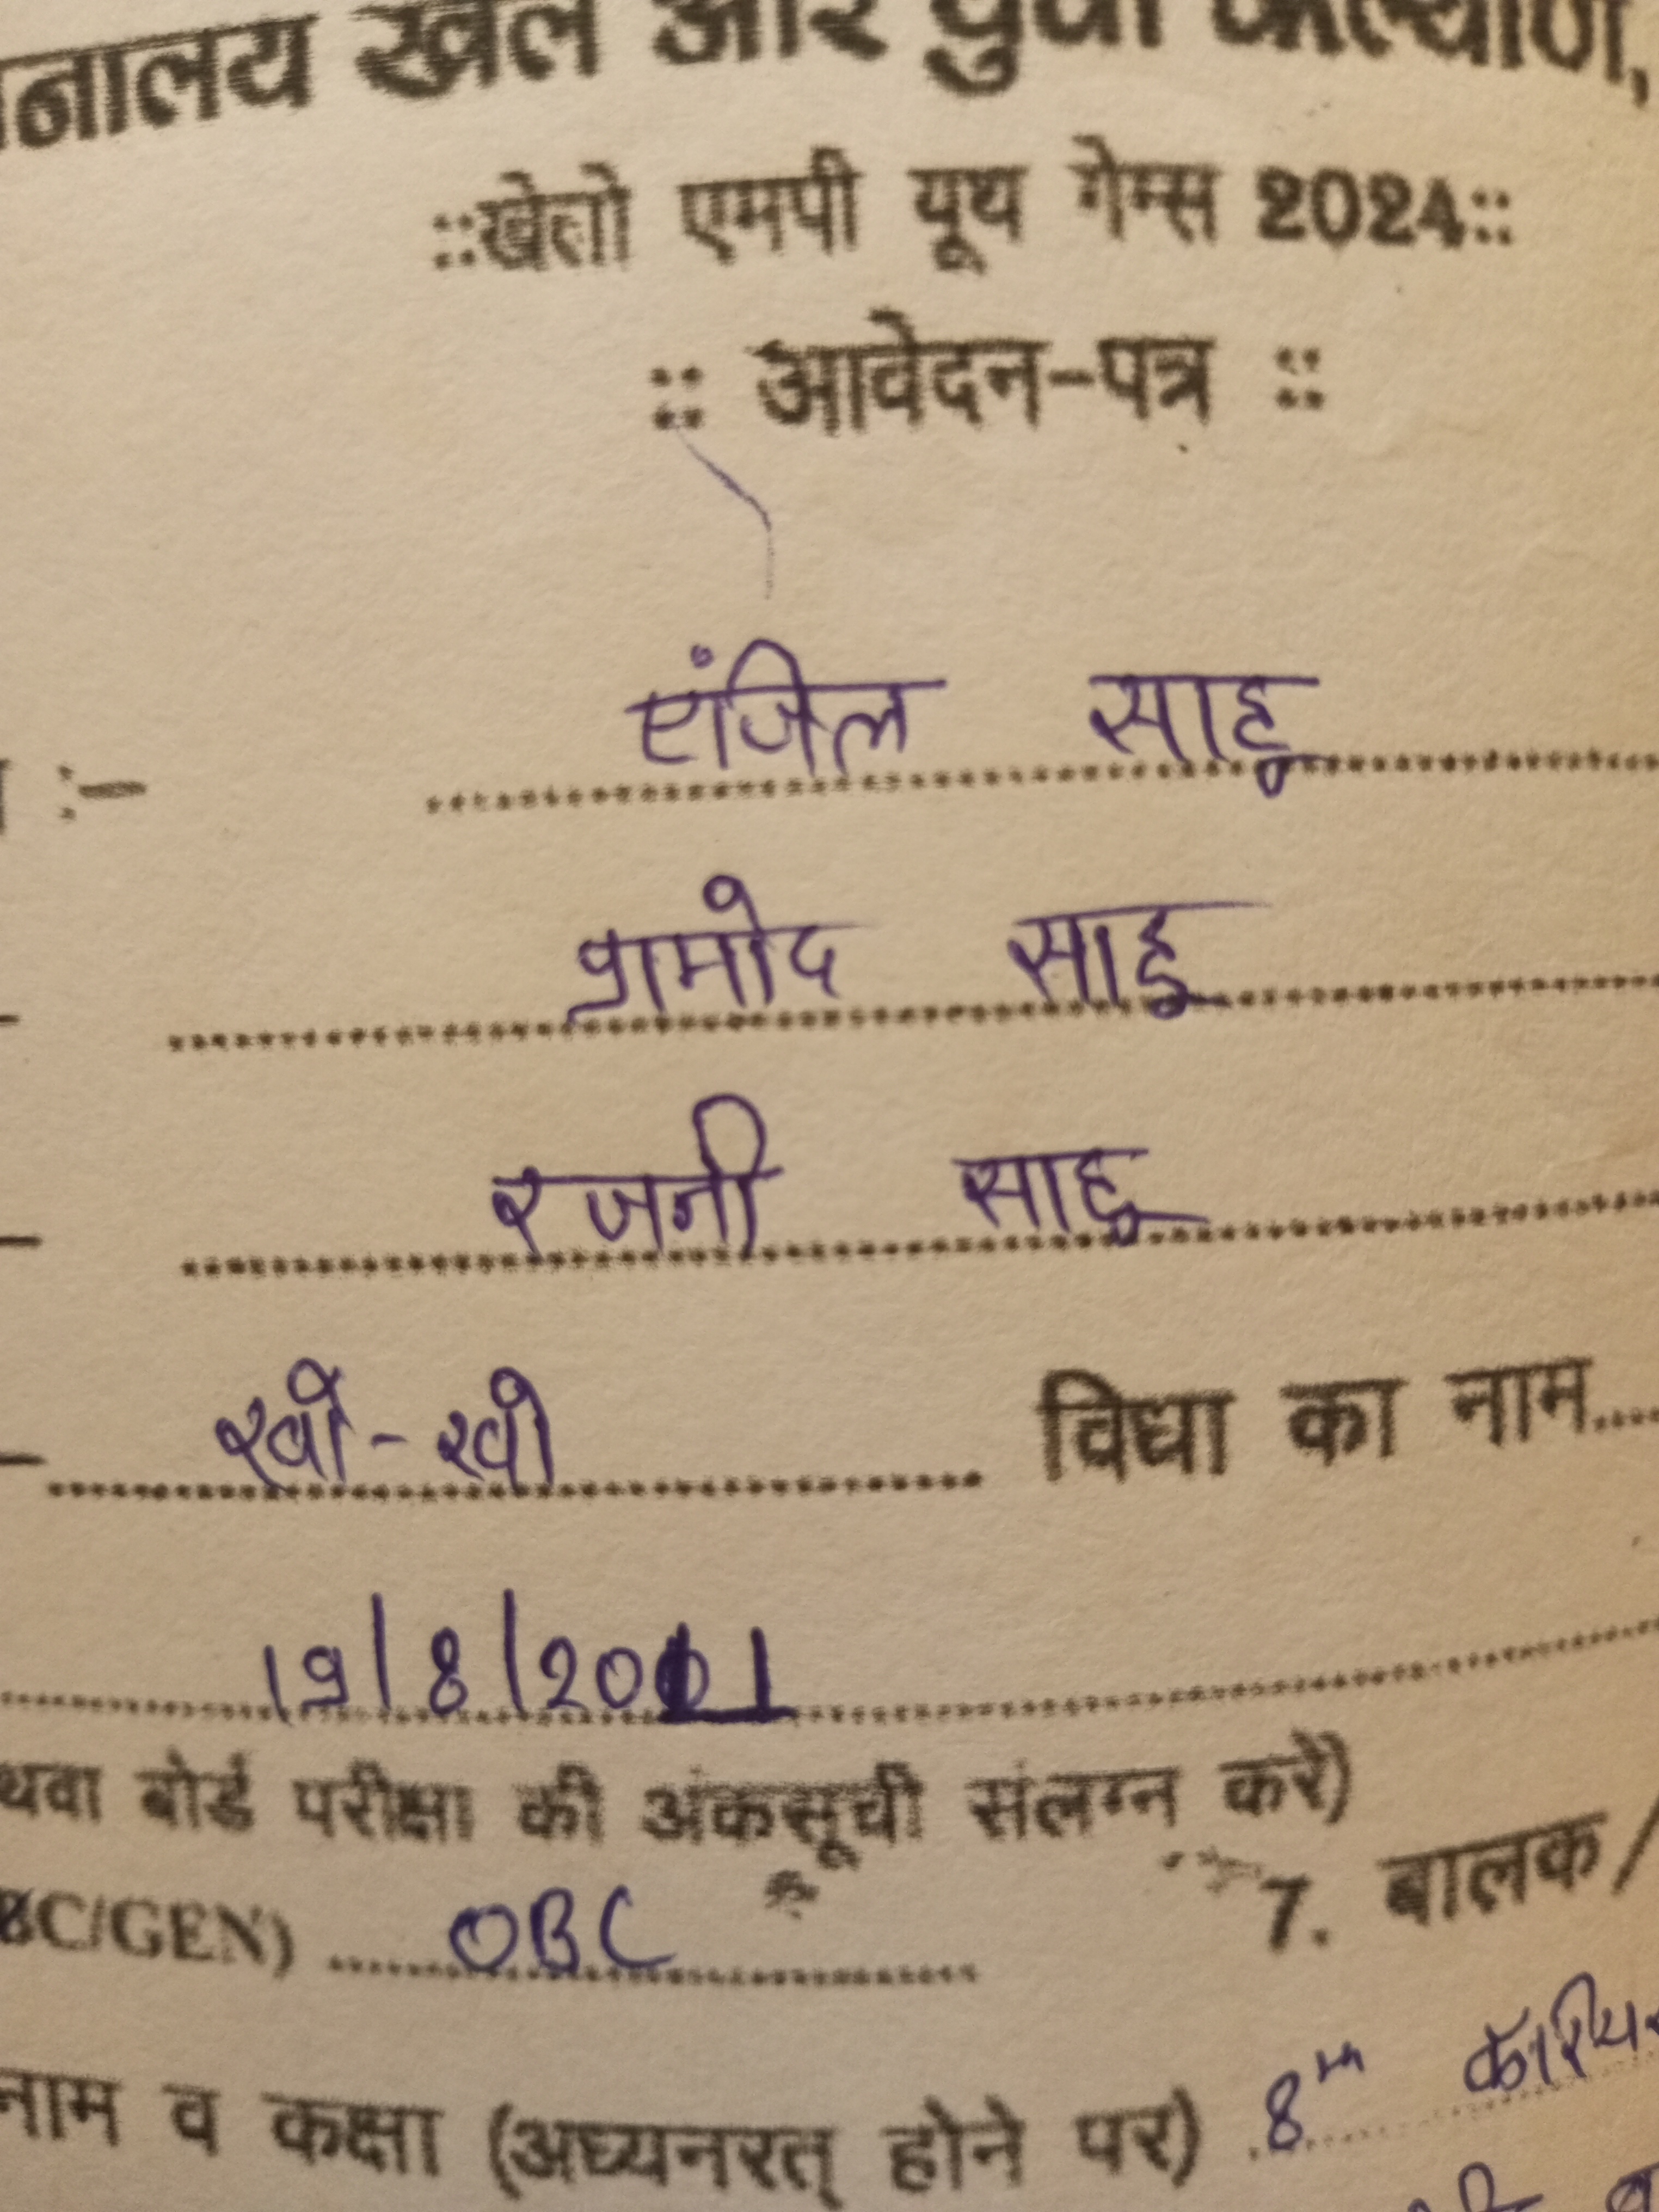 नालय खेल और युवा कल्याण,
::खेलो एमपी यूथ गेम्स 2024::
:: आवेदन-पत्र ::
:- एंजिल साहू
- प्रामोद साहू
- रजनी साहू
- खो-खो विधा का नाम....
19/8/2011
थवा बोर्ड परीक्षा की अंकसूची संलग्न करें)
BC/GEN) OBC 7. बालक/
नाम व कक्षा (अध्यनरत् होने पर) 8th